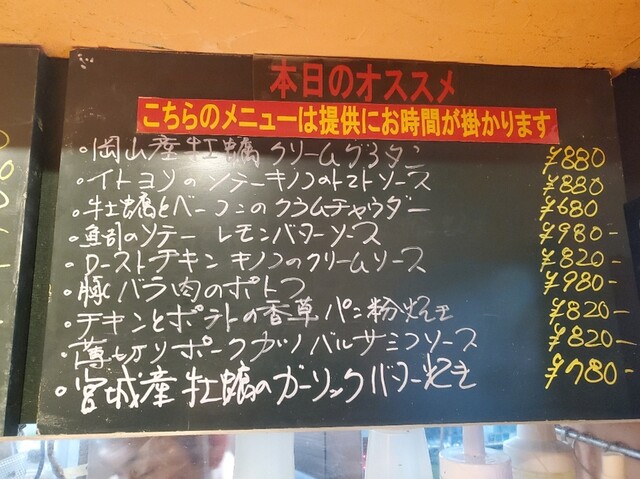 本日のオススメ
こちらのメニューは提供にお時間が掛かります
・岡山産牡蠣クリームグラタン ¥880
・イトヨリのソテーキノコのトマトソース ¥880
・牡蠣とベーコンのクラムチャウダー ¥680
・鰤のソテー レモンバターソース ¥980-
・ローストチキン キノコのクリームソース ¥820-
・豚バラ肉のポトフ ¥980-
・チキンとポテトの香草パン粉焼き ¥820-
・薄切りポークカツ バルサミコソース ¥820-
・宮城産牡蠣のガーリックバター焼き ¥980-